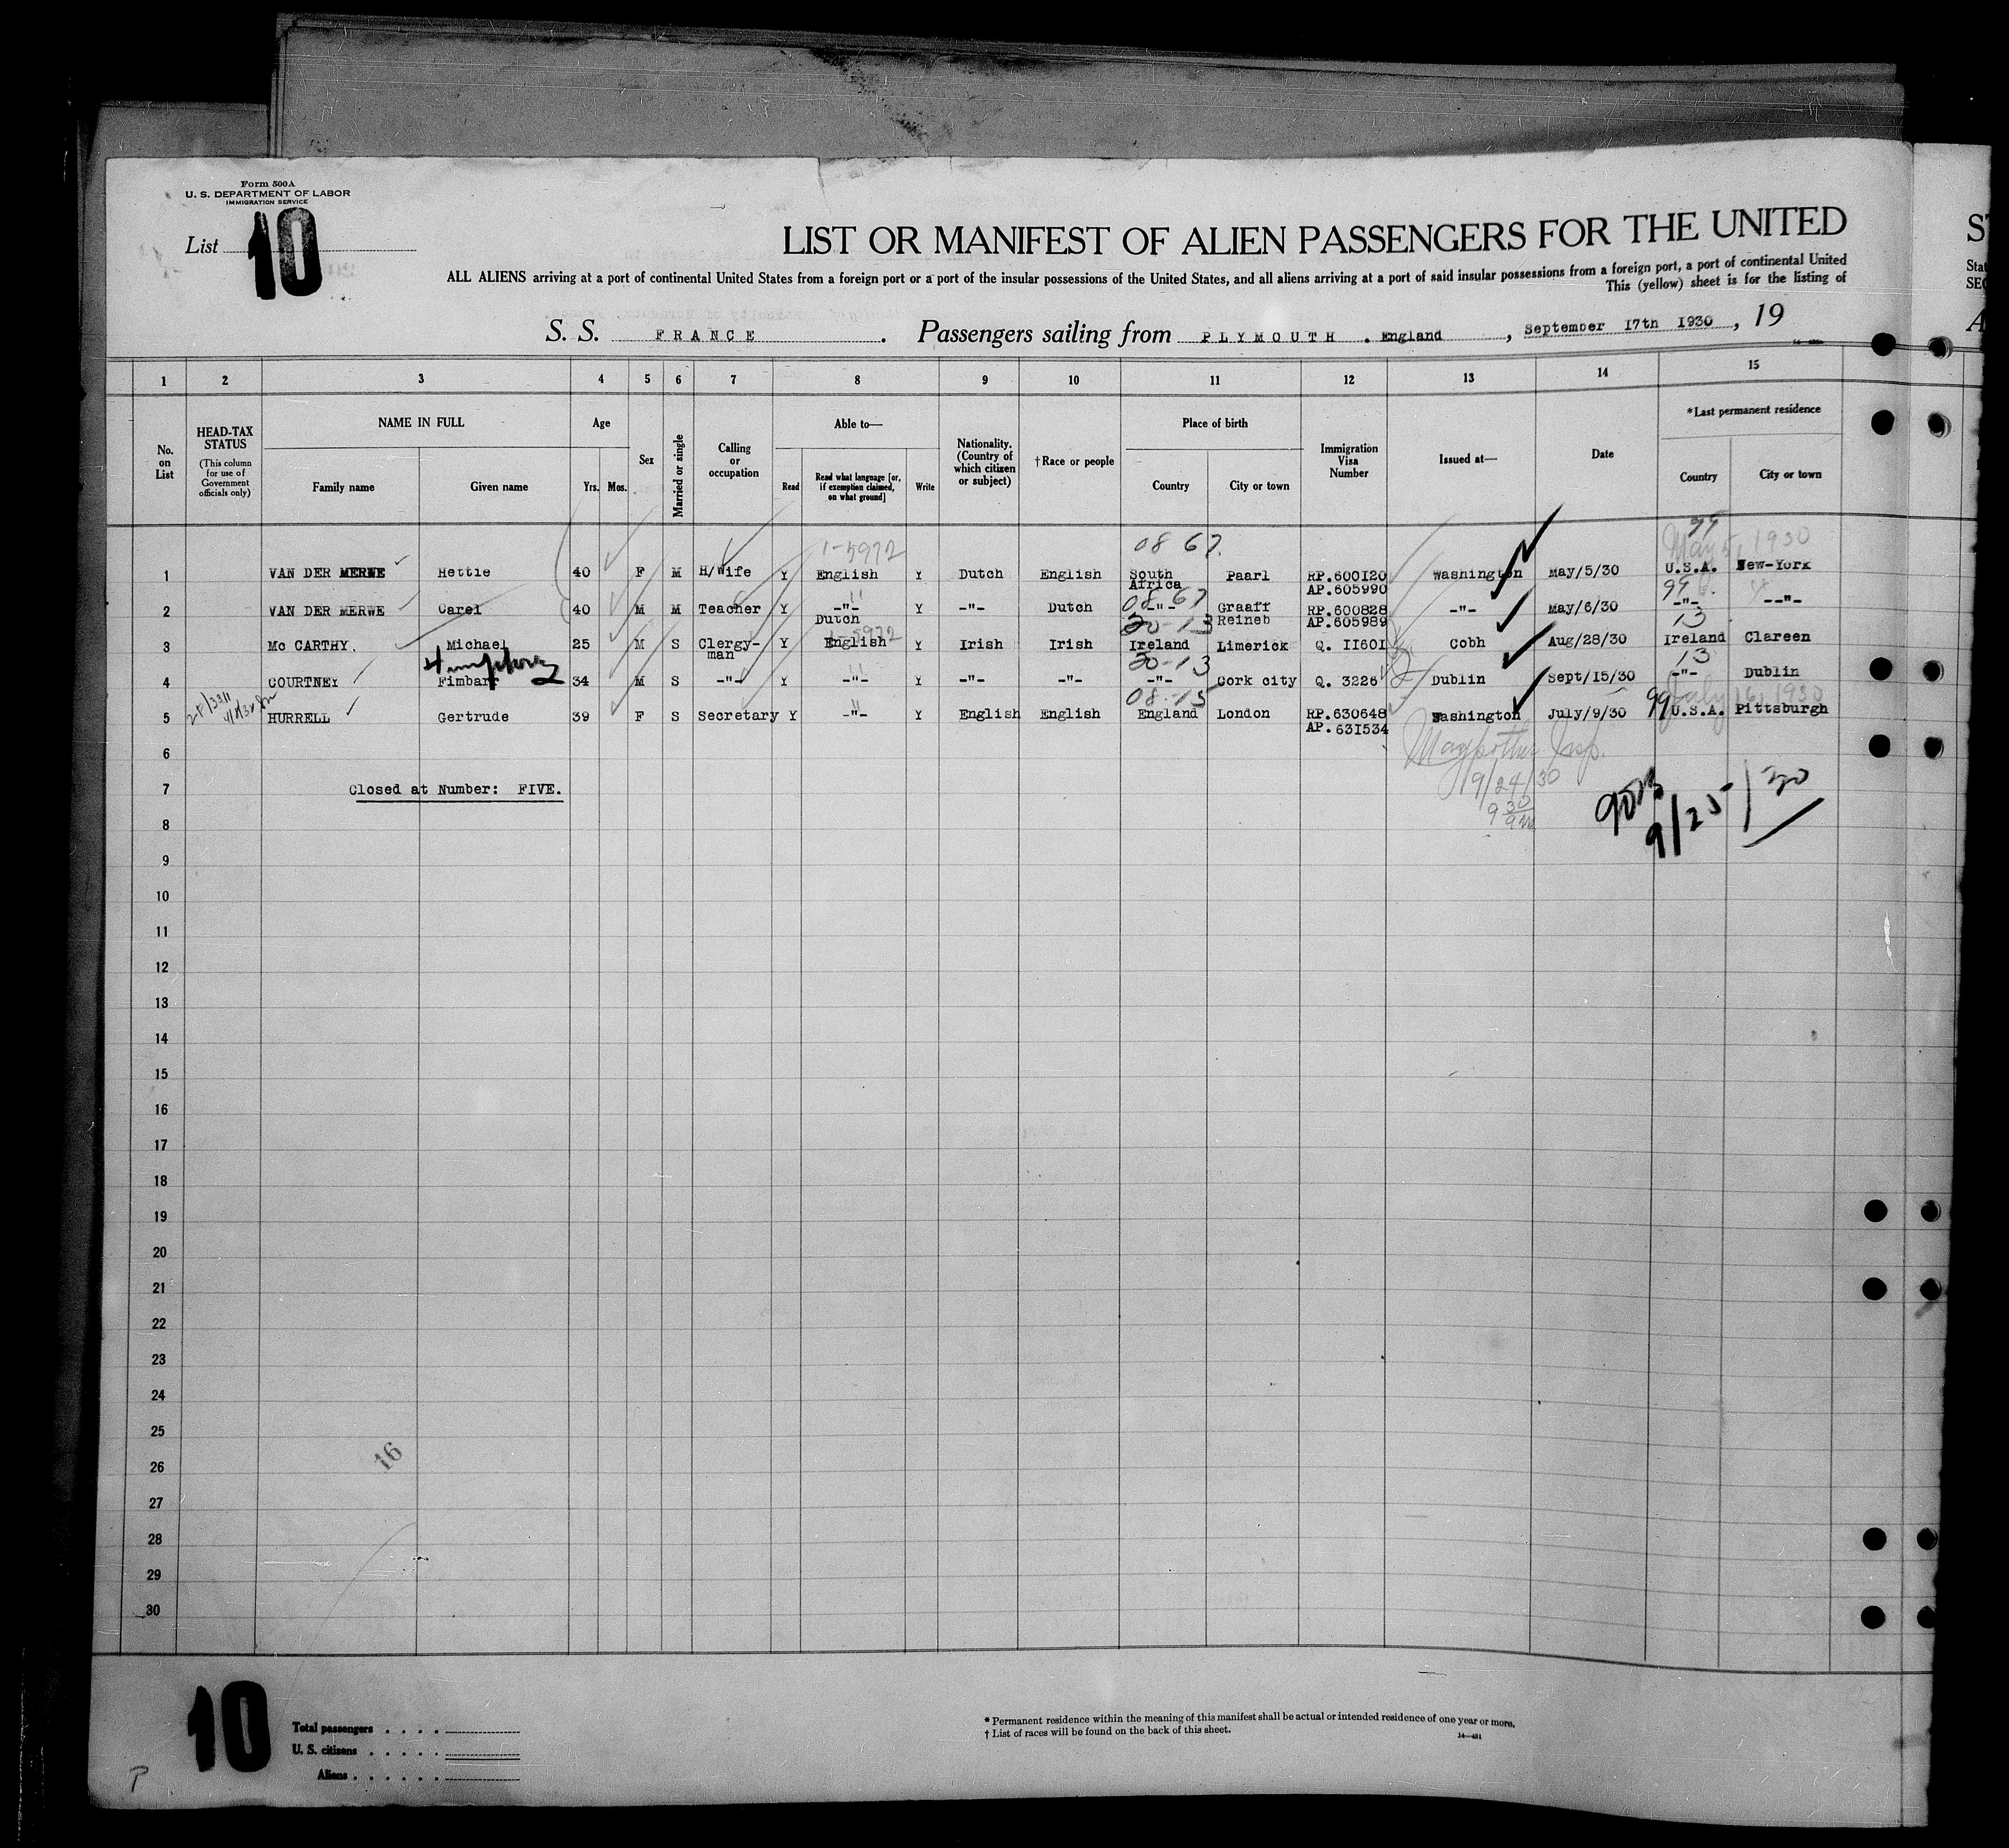 Form 500A
U. S. DEPARTMENT OF LABOR
IMMIGRATION SERVICE
List 10
LIST OR MANIFEST OF ALIEN PASSENGERS FOR THE UNITED
ALL ALIENS arriving at a port of continental United States from a foreign port or a port of the insular possessions of the United States, and all aliens arriving at a port of said insular possessions from a foreign port, a port of continental United
This (yellow) sheet is for the listing of
S. S. FRANCE. Passengers sailing from PLYMOUTH . England , September 17th 1930 , 19
1 2 3 4 5 6 7 8 9 10 11 12 13 14 15
No. on List
HEAD-TAX STATUS
(This column for use of Government officials only)
NAME IN FULL
Family name Given name
Age
Yrs. Mos.
Sex
Married or single
Calling or occupation
Able to—
Read Read what language [or, if exemption claimed, on what ground] Write
Nationality. (Country of which citizen or subject)
†Race or people
Place of birth
Country City or town
Immigration Visa Number
Issued at—
Date
*Last permanent residence
Country City or town
1-5972 08 67. 99 May 5, 1930
1 VAN DER MERWE Hettie 40 F M H/Wife Y English Y Dutch English South Africa Paarl RP.600120 AP.605990 Washington May/5/30 U.S.A. New-York
08 67 99
2 VAN DER MERWE Carel 40 M M Teacher Y -"- Dutch Y -"- Dutch -"- Graaff Reineb RP.600828 AP.605989 -"- May/6/30 -"- --"-
1-5972 20-13 13
3 Mc CARTHY. Michael 25 M S Clergy-man Y English Y Irish Irish Ireland Limerick Q. II60I Cobh Aug/28/30 Ireland Clareen
Humphrey 20-13 13
4 COURTNEY Fimbarr 34 M S -"- Y -"- Y -"- -"- -"- Cork city Q. 3226 Dublin Sept/15/30 -"- Dublin
08-15 99 July 16, 1930
5 HURRELL Gertrude 39 F S Secretary Y -"- Y English English England London RP.630648 AP.631534 Washington July/9/30 U.S.A. Pittsburgh
6
Insp.
9/24/30
9 30 am
7 Closed at Number: FIVE.
9/25/30
8
9
10
11
12
13
14
15
16
17
18
19
20
21
22
23
24
25
16
26
27
28
29
30
10
Total passengers . . . .
U. S. citizens . . . . .
Aliens . . . . . .
* Permanent residence within the meaning of this manifest shall be actual or intended residence of one year or more.
† List of races will be found on the back of this sheet.
P